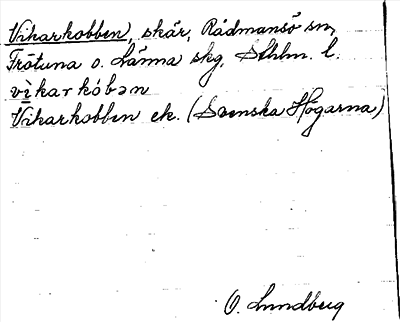 Vikarkobben, skär, Rådmansö sn,
Frötuna o. Länna skg, Sthlm. l.
vìkarkóbən
Vikarkobben ek. (Svenska Högarna)
O. Lundberg